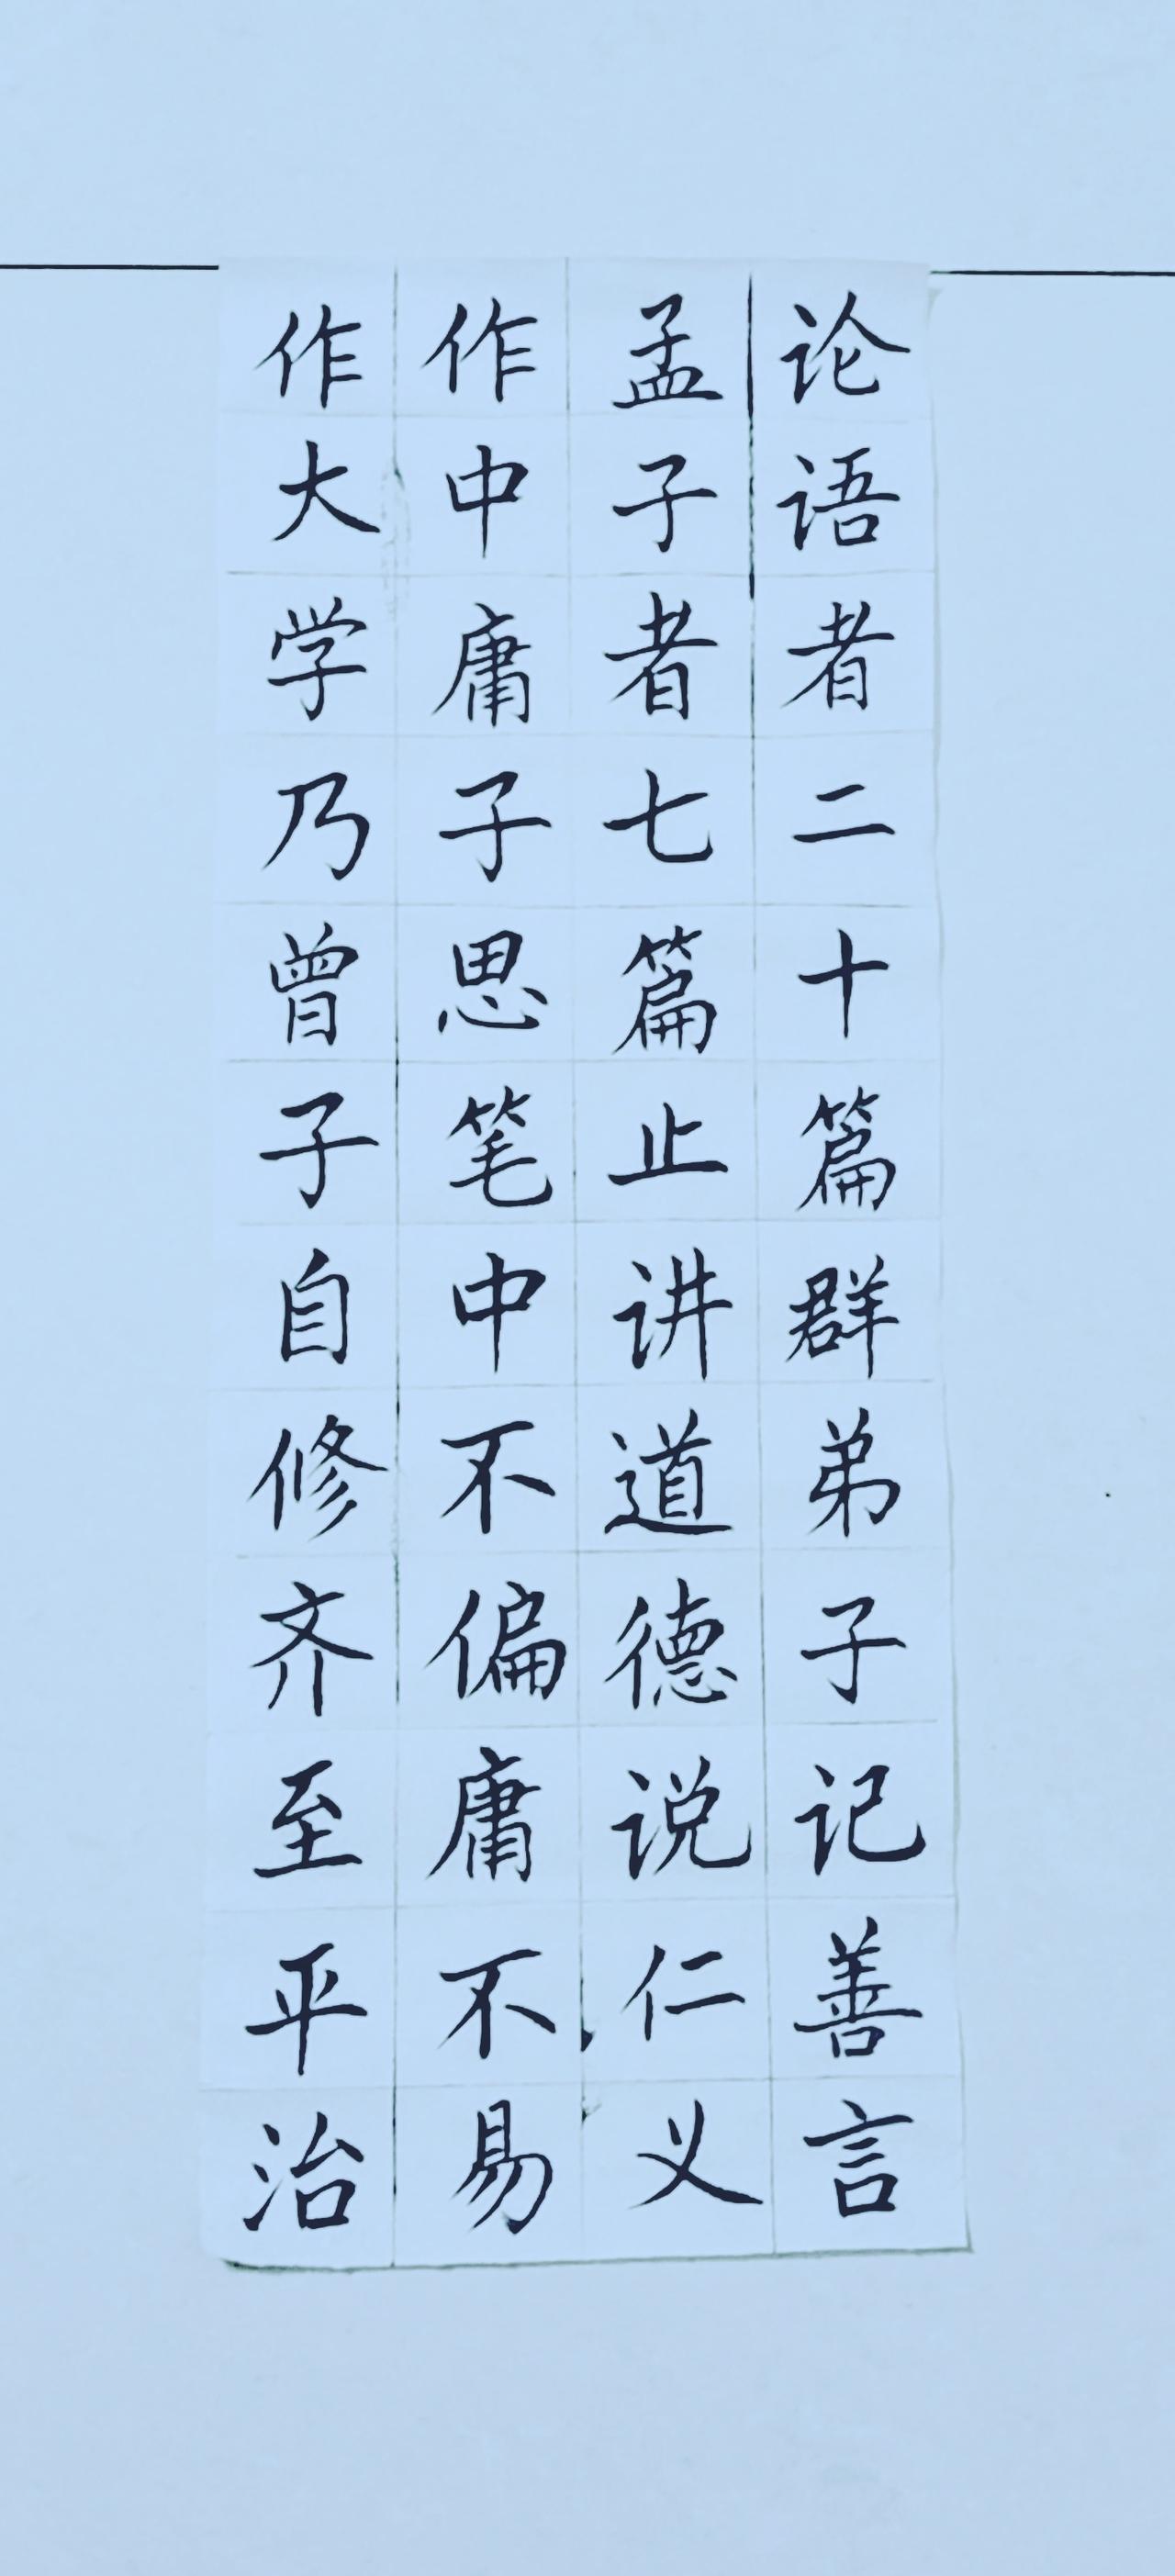 论语者二十篇群弟子记善言
孟子者七篇止讲道德说仁义
作中庸子思笔中不偏庸不易
作大学乃曾子自修齐至平治